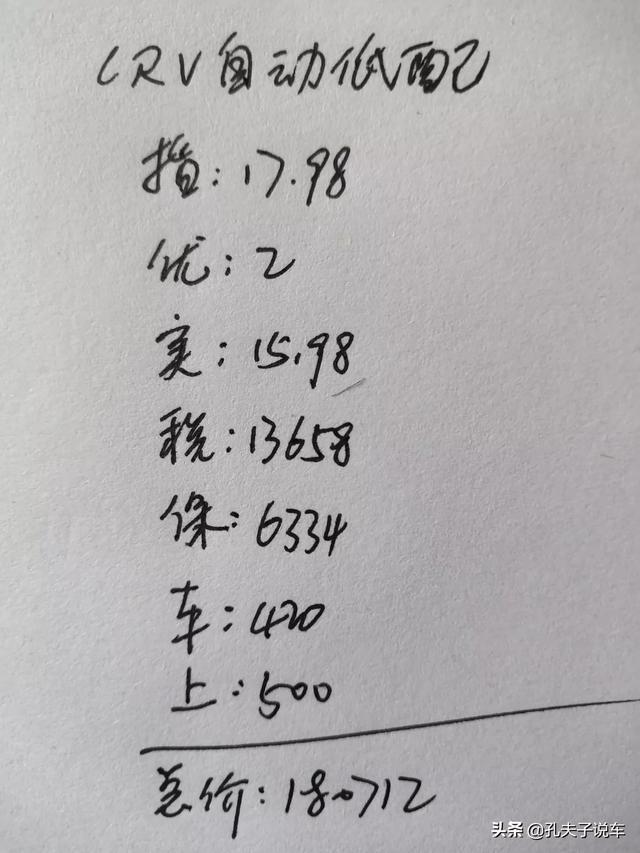 CRV自动低配
指:17.98
优:2
实:15.98
税:13658
保:6334
车:420
上:500
总价:180712
头条 @孔夫子说车